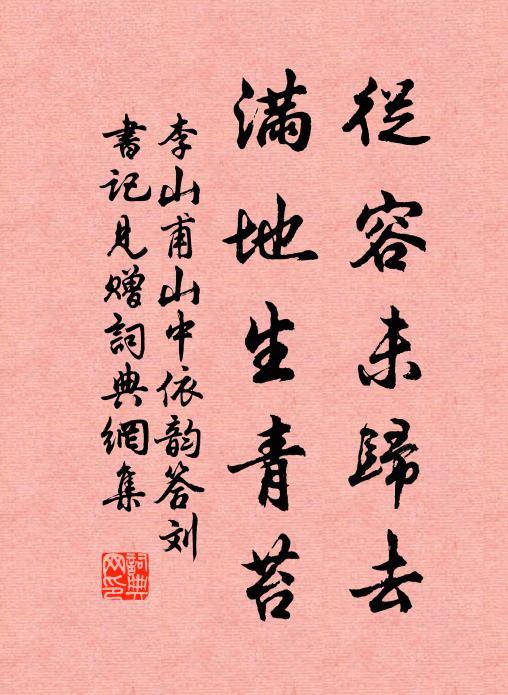 從容未歸去
滿地生青苔
李山甫山中依韵答刘
書记見赠詞典網集
詞典网印